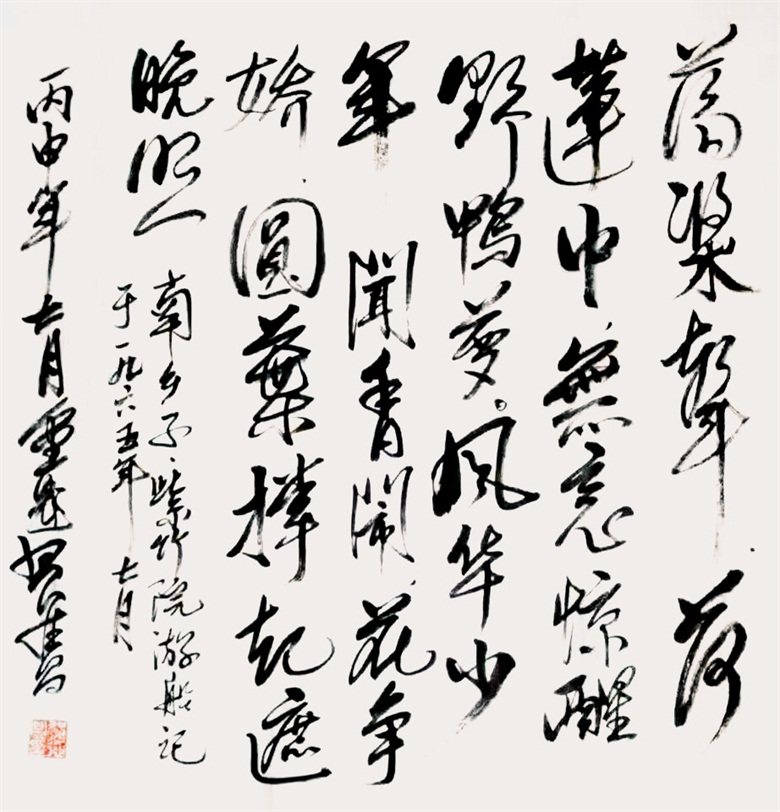 荡桨聲荷
蓮中無意惊醒
野鸭梦风华少
年聞香闹花争
娇圓葉撑起遮
晚照
南乡子紫竹院游船记
于一九六五年七月
丙申年七月重